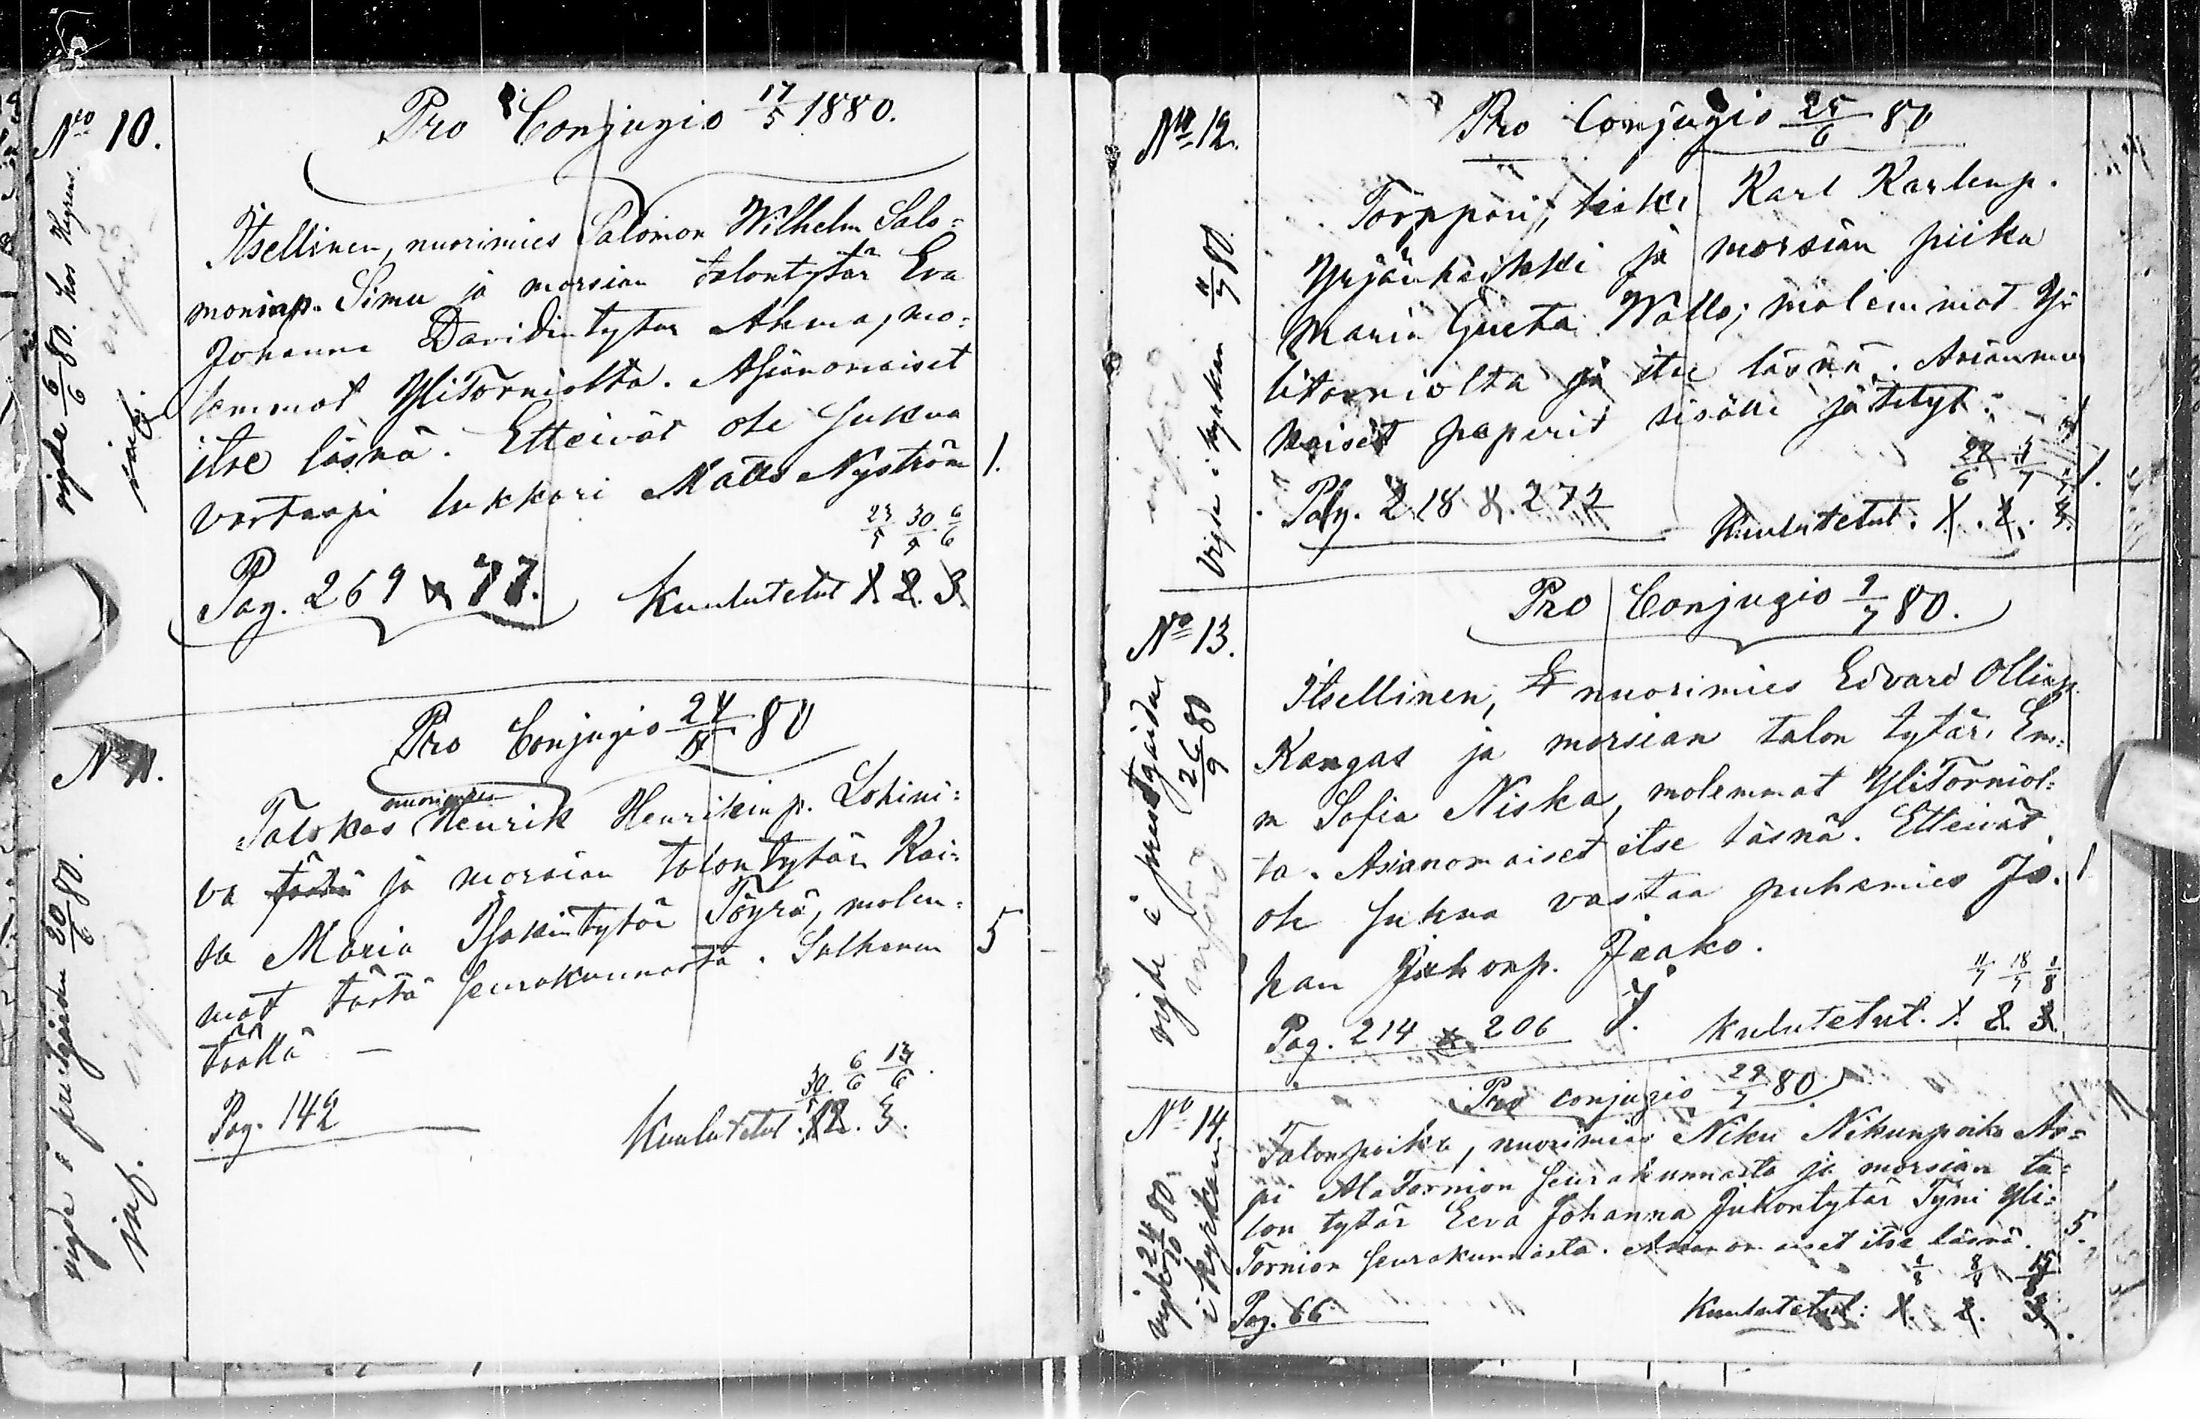 No 10.
Pro Conjugio 17/5 1880.
Itsellinen, nuorimies Salomon Wilhelm Salo=
moninp. Simu ja morsian talontytär Eva
Johanna Davidintytär Ahma, mo=
lemmat YliTorniolta. Asianomaiset
itse läsnä. Etteivät ole sukua
vastaapi lukkari Matts Nyström
1.
23/5 30/5 6/6
Pag. 269 & 77. Kuulutetut 1. 2. 3.
vigde 6/6 80. hos
införd
No 11.
Pro Conjugio 24/5 80
nuorimies
Talokas Henrik Henrikinp. Lohini=
va ja morsian talontytär Kai=
sa Maria Isakintytär Töyrä, molem=
mat tästä seurakunnasta. Sulhanen
täällä —
5
30/5 6/6 13/6
Pag. 142 Kuulutetut. 1. 2. 3.
vigde i prestgården 20/6 80.
införd
No 12.
Pro Conjugio 25/6 80
Torppari, leski Karl Karlenp.
Yrjänheikki ja morsian piika
Maria Greta Wallo; molemmat Yl
litorniolta ja itse läsnä. Asianmu
kaiset paperit sisälle jätetyt.
1.
Pag. 218 & 272 Kuulutetut. 1. 2. 3.
införd
Vigde i kyrkan 11/7 80.
No 13.
Pro Conjugio 9/7 80.
Itsellinen, nuorimies Edvard Ollinp.
Kangas ja morsian talon tytär Em=
m Sofia Niska, molemmat YliTorniol=
ta. Asianomaiset itse läsnä. Etteivät
ole sukua vastaa puhemies Jo.
han Juhonp. Jaako.
1
11/7 18/7 1/8
Pag. 214 & 206 Kulutetut. 1. 2. 3.
vigde i prestgården 26/9 80
införd
No 14.
Pro conjugio 29/7 80
Talonpoika, nuorimies Niku Nikunpoika Ar=
pi AlaTornion seurakunnasta ja morsian ta=
lon tytär Eeva Johanna Juhontytär Tyni Yli=
Tornion seurakunnasta. Asianomaiset itse läsnä.
5.
1/8 8/8 15/8
Pag. 66 Kuulutetut: 1. 2. 3.
vigde 24/10 80.
i kyrkan